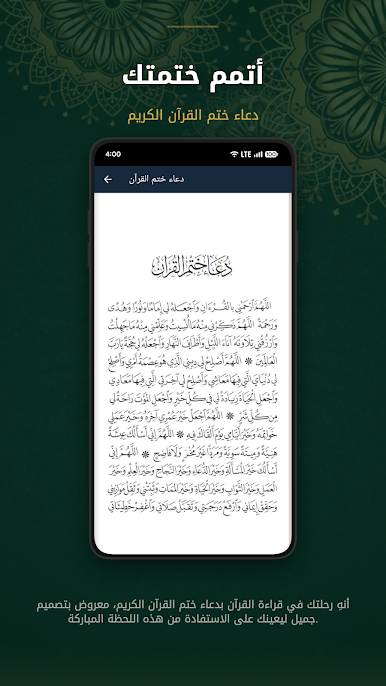 أتمم ختمتك
دعاء ختم القرآن الكريم
4:00
LTE
100
دعاء ختم القرآن
دُعَاءُ خَتْمِ الْقُرْآنِ
اللَّهُمَّ ارْحَمْنِي بِالْقُرْءَانِ وَاجْعَلْهُ لِي إِمَامًا وَنُورًا وَهُدًى
وَرَحْمَةً اللَّهُمَّ ذَكِّرْنِي مِنْهُ مَا نُسِّيتُ وَعَلِّمْنِي مِنْهُ مَا جَهِلْتُ
وَارْزُقْنِي تِلَاوَتَهُ آنَاءَ اللَّيْلِ وَأَطْرَافَ النَّهَارِ وَاجْعَلْهُ لِي حُجَّةً يَا رَبَّ
الْعَالَمِينَ ۞ اللَّهُمَّ أَصْلِحْ لِي دِينِي الَّذِي هُوَ عِصْمَةُ أَمْرِي وَأَصْلِحْ
لِي دُنْيَايَ الَّتِي فِيهَا مَعَاشِي وَأَصْلِحْ لِي آخِرَتِي الَّتِي فِيهَا مَعَادِي
وَاجْعَلِ الْحَيَاةَ زِيَادَةً لِي فِي كُلِّ خَيْرٍ وَاجْعَلِ الْمَوْتَ رَاحَةً لِي
مِنْ كُلِّ شَرٍّ ۞ اللَّهُمَّ اجْعَلْ خَيْرَ عُمْرِي آخِرَهُ وَخَيْرَ عَمَلِي
خَوَاتِمَهُ وَخَيْرَ أَيَّامِي يَوْمَ أَلْقَاكَ فِيهِ ۞ اللَّهُمَّ إِنِّي أَسْأَلُكَ عِيشَةً
هَنِيَّةً وَمِيتَةً سَوِيَّةً وَمَرَدًّا غَيْرَ مُخْزٍ وَلَا فَاضِحٍ ۞ اللَّهُمَّ إِنِّي
أَسْأَلُكَ خَيْرَ الْمَسْأَلَةِ وَخَيْرَ الدُّعَاءِ وَخَيْرَ النَّجَاحِ وَخَيْرَ الْعِلْمِ وَخَيْرَ
الْعَمَلِ وَخَيْرَ الثَّوَابِ وَخَيْرَ الْحَيَاةِ وَخَيْرَ الْمَمَاتِ وَثَبِّتْنِي وَثَقِّلْ مَوَازِينِي
وَحَقِّقْ إِيمَانِي وَارْفَعْ دَرَجَتِي وَتَقَبَّلْ صَلَاتِي وَاغْفِرْ خَطِيئَاتِي
أنهِ رحلتك في قراءة القرآن بدعاء ختم القرآن الكريم، معروض بتصميم
جميل ليعينك على الاستفادة من هذه اللحظة المباركة.